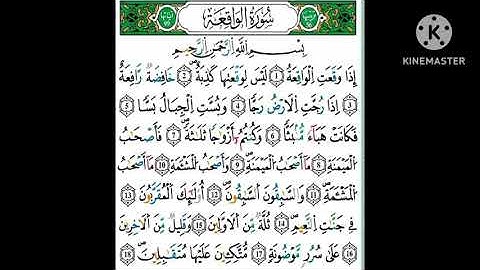 سُورَةُ الْوَاقِعَةِ
بِسْمِ اللَّهِ الرَّحْمَنِ الرَّحِيمِ
إِذَا وَقَعَتِ الْوَاقِعَةُ ١ لَيْسَ لِوَقْعَتِهَا كَاذِبَةٌ ٢ خَافِضَةٌ رَافِعَةٌ
٣ إِذَا رُجَّتِ الْأَرْضُ رَجًّا ٤ وَبُسَّتِ الْجِبَالُ بَسًّا ٥
فَكَانَتْ هَبَاءً مُنْبَثًّا ٦ وَكُنْتُمْ أَزْوَاجًا ثَلَاثَةً ٧ فَأَصْحَابُ
الْمَيْمَنَةِ مَا أَصْحَابُ الْمَيْمَنَةِ ٨ وَأَصْحَابُ الْمَشْأَمَةِ مَا أَصْحَابُ
الْمَشْأَمَةِ ٩ وَالسَّابِقُونَ السَّابِقُونَ ١٠ أُولَئِكَ الْمُقَرَّبُونَ ١١
فِي جَنَّاتِ النَّعِيمِ ١٢ ثُلَّةٌ مِنَ الْأَوَّلِينَ ١٣ وَقَلِيلٌ مِنَ الْآخِرِينَ
١٤ عَلَى سُرُرٍ مَوْضُونَةٍ ١٥ مُتَّكِئِينَ عَلَيْهَا مُتَقَابِلِينَ ١٦
KINEMASTER